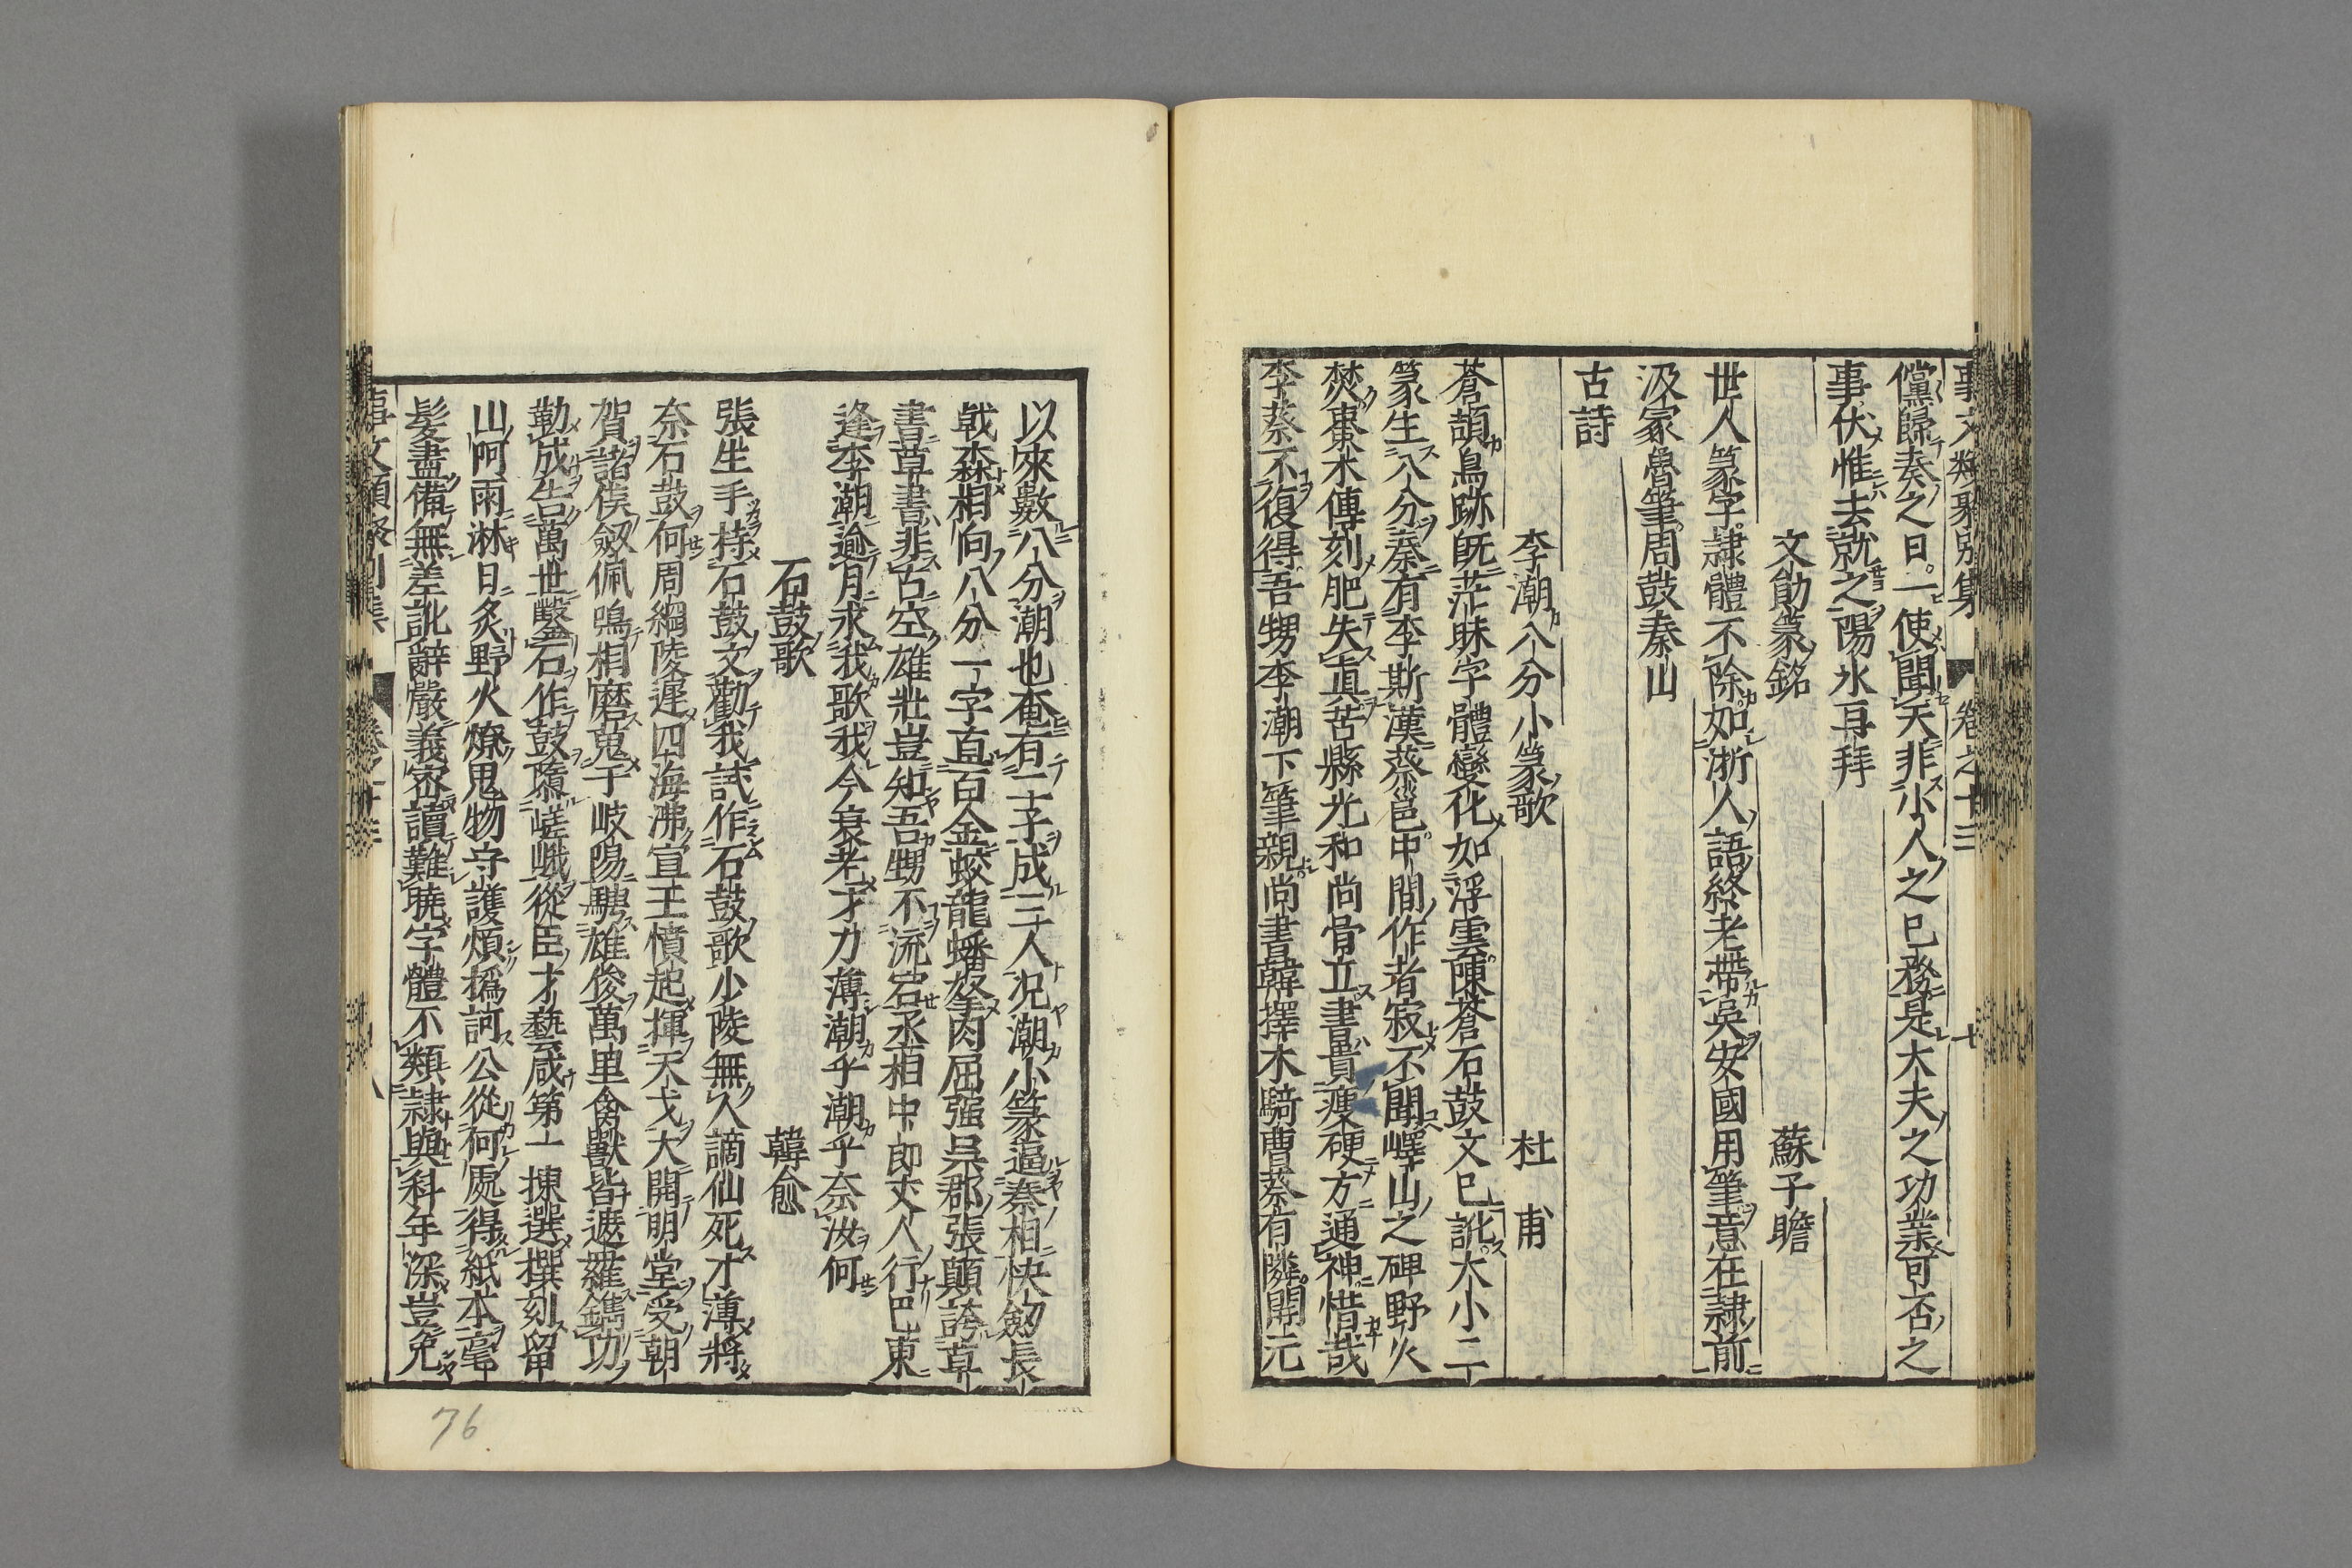 事文類聚別集 卷之十三 七
儻歸奏之日一使聞天非小人之已務是大夫之功業可否之
事伏惟去就之陽氷再拜
文勛篆銘 蘇子瞻
世人篆字隷體不除如浙人語終老帶吳安國用筆意在隷前
汲冢魯筆周鼓秦山
古詩
李潮八分小篆歌 杜甫
蒼頡鳥跡旣茫昧字體變化如浮雲陳蒼石鼓文已訛大小二
篆生八分秦有李斯漢蔡邕中間作者寂不聞嶧山之碑野火
焚棗木傳刻肥失眞苦縣光和尚骨立書貴瘦硬方通神惜哉
李蔡不復得吾甥李潮下筆親尚書韓擇木騎曹蔡有隣開元
以來數八分潮也奄有二子成三人况潮小篆逼秦相快劔長
戟森相向八分一字直百金蛟龍蟠拏肉屈强吳郡張顛誇草
書草書非古空雄壯豈知吾甥不流宕丞相中郎丈人行巴東
逢李潮逾月求我歌我今衰老才力薄潮乎潮乎奈汝何
石鼓歌 韓愈
張生手持石鼓文勸我試作石鼓歌小陵無人謫仙死才薄將
奈石鼓何周綱陵遲四海沸宣王憤起揮天戈大開明堂受朝
賀諸侯劔佩鳴相磨蒐于岐陽騁雄俊萬里禽獸皆遮羅鐫功
勒成告萬世鑿石作鼓隳嵯峨從臣才藝咸第一揀選撰刻留
山阿雨淋日炙野火燎鬼物守護煩撝訶公從何處得紙本毫
髮盡備無差訛辭嚴義密讀難曉字體不類隷與科年深豈免
事文類聚別集 卷之十三 八
76